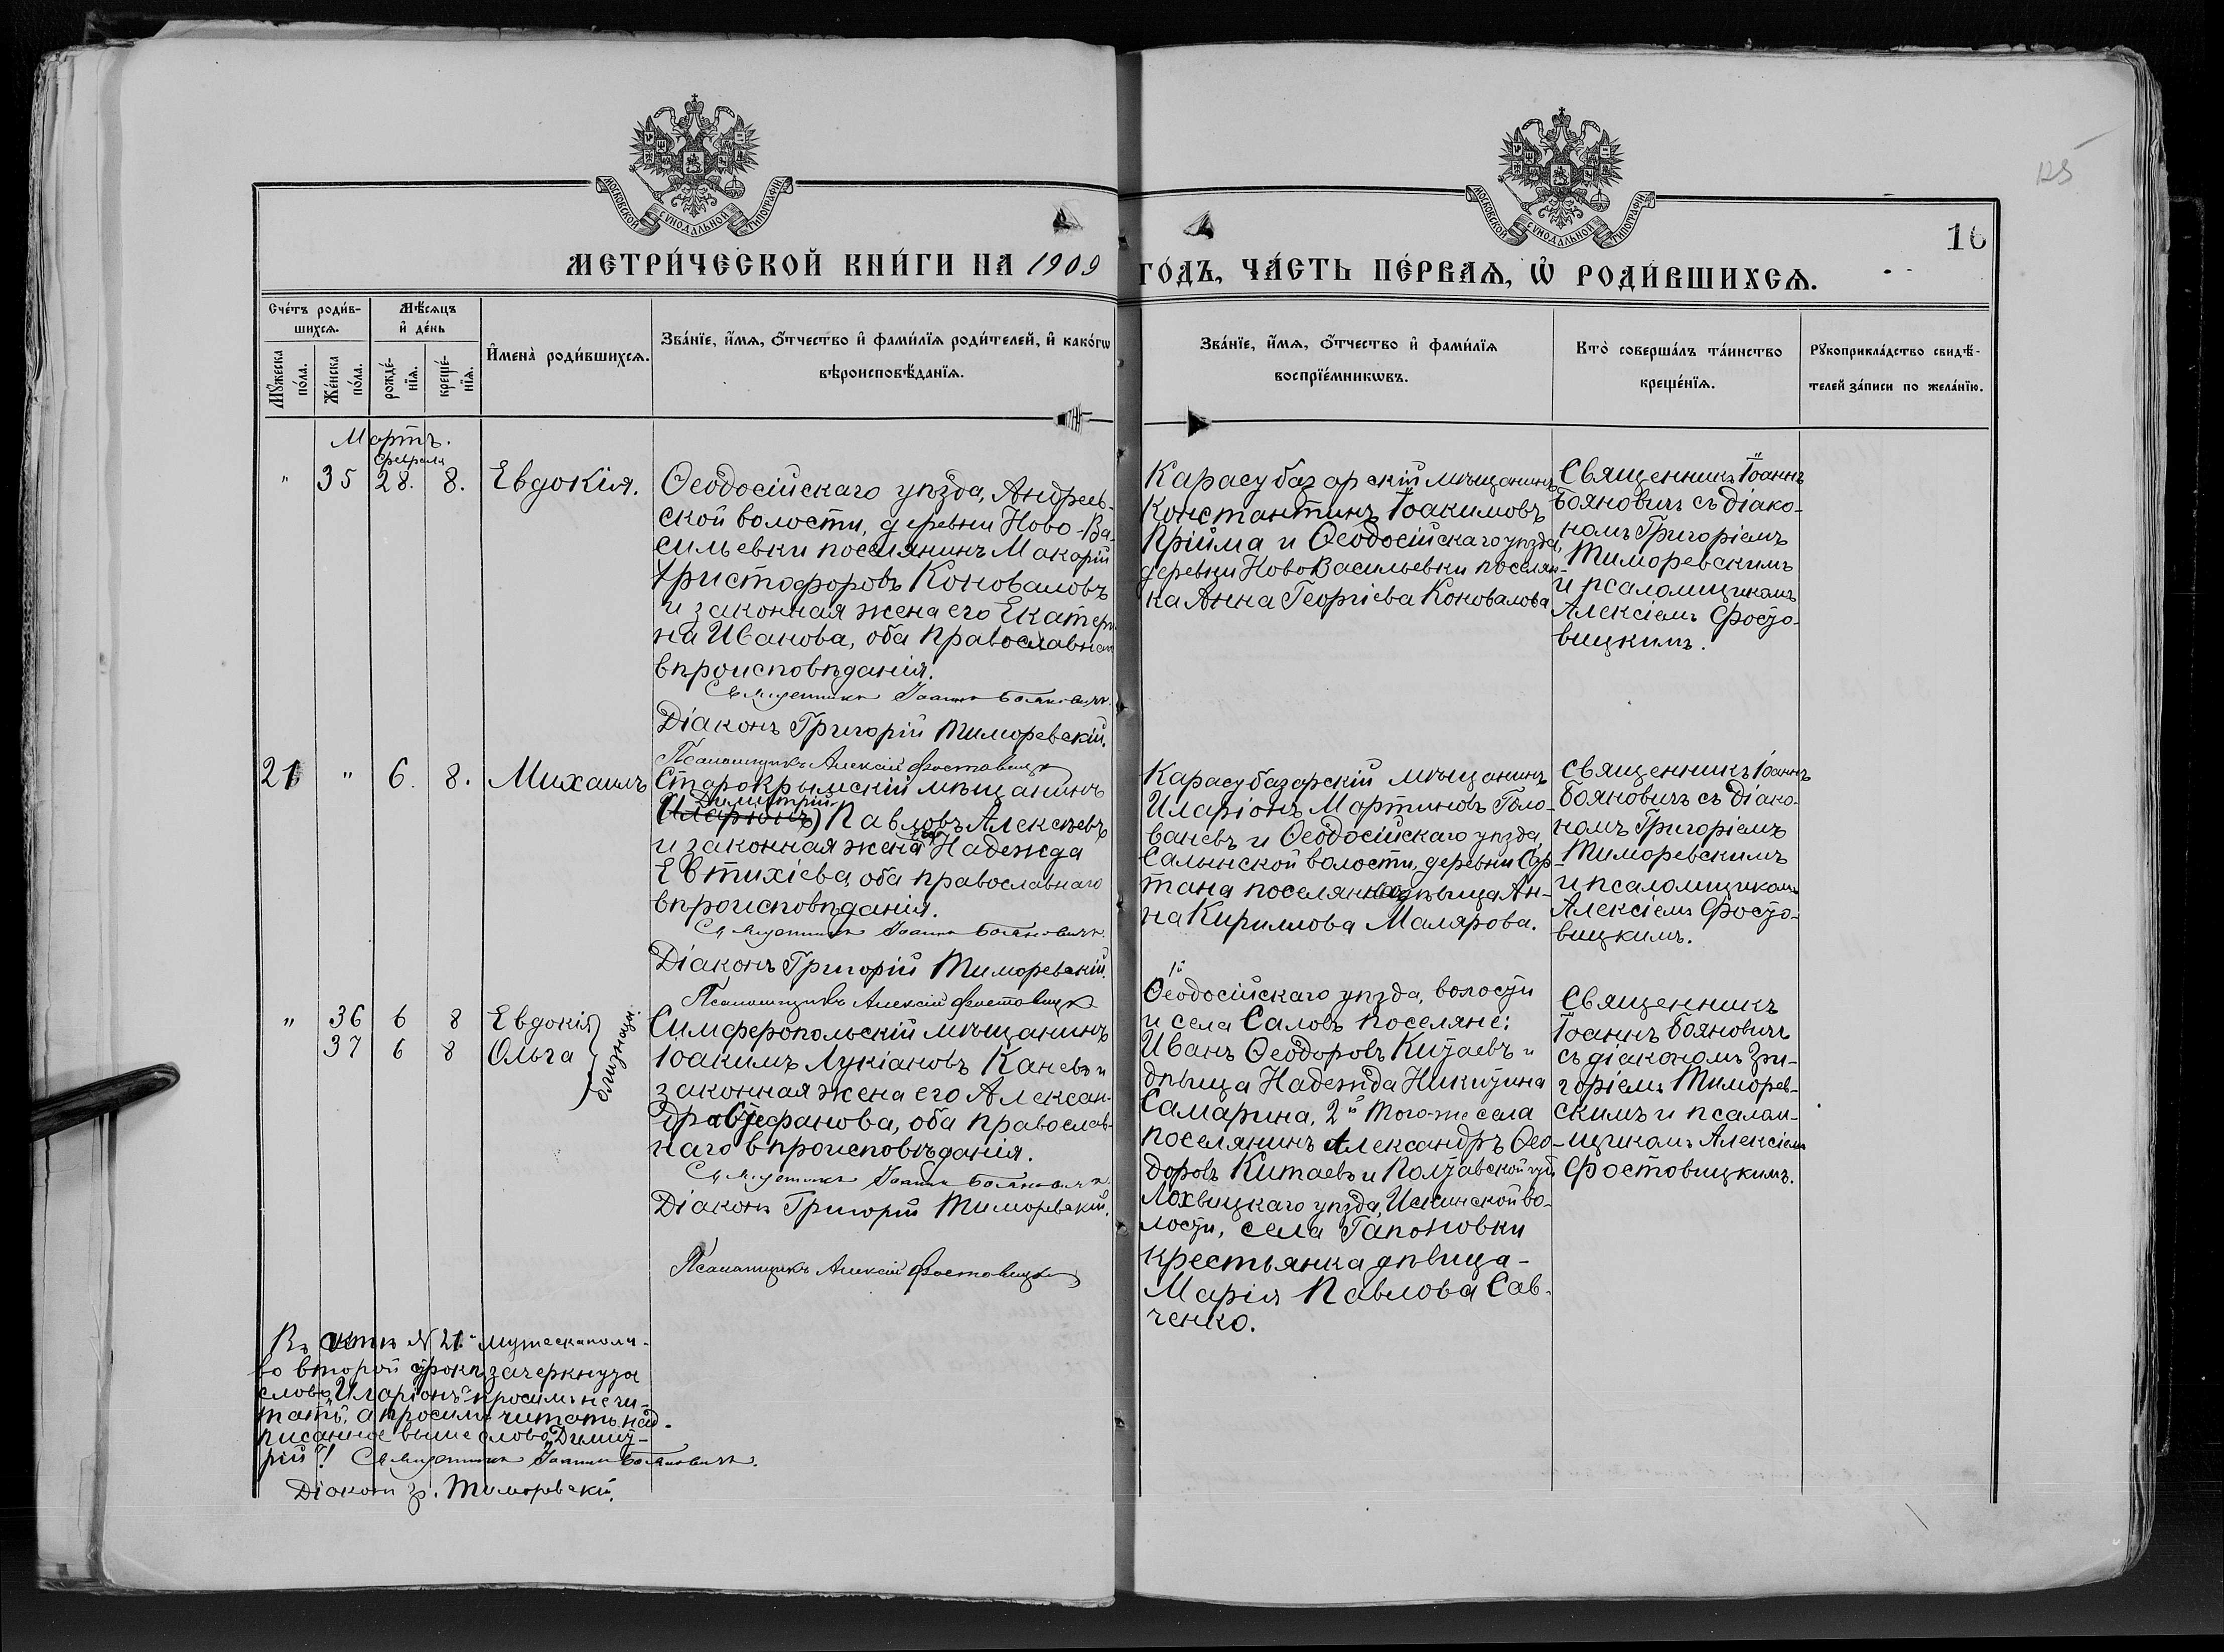 125
16
МОСКОВСКОЙ СѴНОДАЛЬНОЙ ТИПОГРАФІИ
МОСКОВСКОЙ СѴНОДАЛЬНОЙ ТИПОГРАФІИ
МЕТРИ́ЧЕСКОЙ КНИ́ГИ НА 1909
ГО́ДЪ, ЧА́СТЬ ПЕ́РВАѦ, Ѡ҆ РОДИ́ВШИХСѦ.
Сче́тъ роди́в-
шихсѧ.
Мꙋ́жеска
по́ла.
Же́нска
по́ла.
Мѣ́сѧцъ
и҆ де́нь
рожде́-
нїѧ.
креще́-
нїѧ.
И҆мена̀ роди́вшихсѧ.
Зва́нїе, и҆́мѧ, ѻ҆́тчество и҆ фами́лїѧ роди́телей, и҆ како́гѡ
вѣроисповѣ́данїѧ.
Зва́нїе, и҆́мѧ, ѻ҆́тчество и҆ фами́лїѧ
воспрїе́мникѡвъ.
Кто̀ соверша́лъ та́инство
креще́нїѧ.
Рꙋкоприкла́дство свидѣ́-
телей за́писи по жела́нїю.
Мартъ.
Февраля
" 35 28. 8. Евдокія.
Ѳеодосійскаго уѣзда, Андреев-
ской волости, деревни Ново-Ва-
сильевки поселянинъ Макарій
Христофоровъ Коноваловъ
и законная жена его Екатери-
на Иванова, оба православнаго
вѣроисповѣданія.
Священникъ Іоаннъ Бояновичъ.
Діаконъ Григорій Тиморевскій.
Псаломщикъ Алексій Фостовицкі
Карасубазарскій мѣщанинъ
Константинъ Іоакимовъ
Прійма и Ѳеодосійскаго уѣзда,
деревни НовоВасильевки поселян-
ка Анна Георгіева Коновалова
Священникъ Іоаннъ
Бояновичъ съ діако-
номъ Григоріемъ
Тиморевскимъ
и псаломщикомъ
Алексіемъ Фосто-
вицкимъ.
21 " 6. 8. Михаилъ
Старокрымскій мѣщанинъ
Димитрій
(Иларіонъ) Павловъ Алексѣевъ
и законная жена его Надежда
Евтихіева, оба православнаго
вѣроисповѣданія.
Священникъ Іоаннъ Бояновичъ.
Діаконъ Григорій Тиморевскій.
Псаломщикъ Алексій Фостовицкі
Карасубазарскій мѣщанинъ
Иларіонъ Мартиновъ Голо-
ваневъ и Ѳеодосійскаго уѣзда,
Салынской волости, деревни Сар-
тана поселянка дѣвица Ан-
на Кириллова Малярова.
Священникъ Іоаннъ
Бояновичъ съ діако-
номъ Григоріемъ
Тиморевскимъ
и псаломщикомъ
Алексіемъ Фосто-
вицкимъ.
" 36 6 8 Евдокія
37 6 8 Ольга
близнецы.
Симферопольскій мѣщанинъ
Іоакимъ Лукіановъ Каневъ и
законная жена его Алексан-
дра Стефанова, оба православ-
наго вѣроисповѣданія.
Священникъ Іоаннъ Бояновичъ.
Діаконъ Григорій Тиморевскій.
Псаломщикъ Алексій Фостовицкі
1й
Ѳеодосійскаго уѣзда, волости
и села Саловъ поселяне:
Иванъ Ѳеодоровъ Китаевъ и
дѣвица Надежда Никитина
Самарина, 2й того-же села
поселянинъ Александръ Ѳео-
доровъ Китаевъ и Полтавской губ
Лохвицкаго уѣзда, Искинской во-
лости, села Гапоновки
крестьянка дѣвица-
Марія Павлова Сав-
ченко.
Священникъ
Іоаннъ Бояновичъ
съ діакономъ Гри-
горіемъ Тиморев-
скимъ и псалом-
щикомъ Алексіемъ
Фостовицкимъ.
Въ актѣ № 21й мужеска пола -
во второй строкѣ зачеркнутое
слово „Иларіонъ" просимъ не чи-
тать, а просимъ читать над-
писанное выше слово „Димит-
рій"! Священникъ Іоаннъ Бояновичъ.
Діаконъ Гр. Тиморевскій.